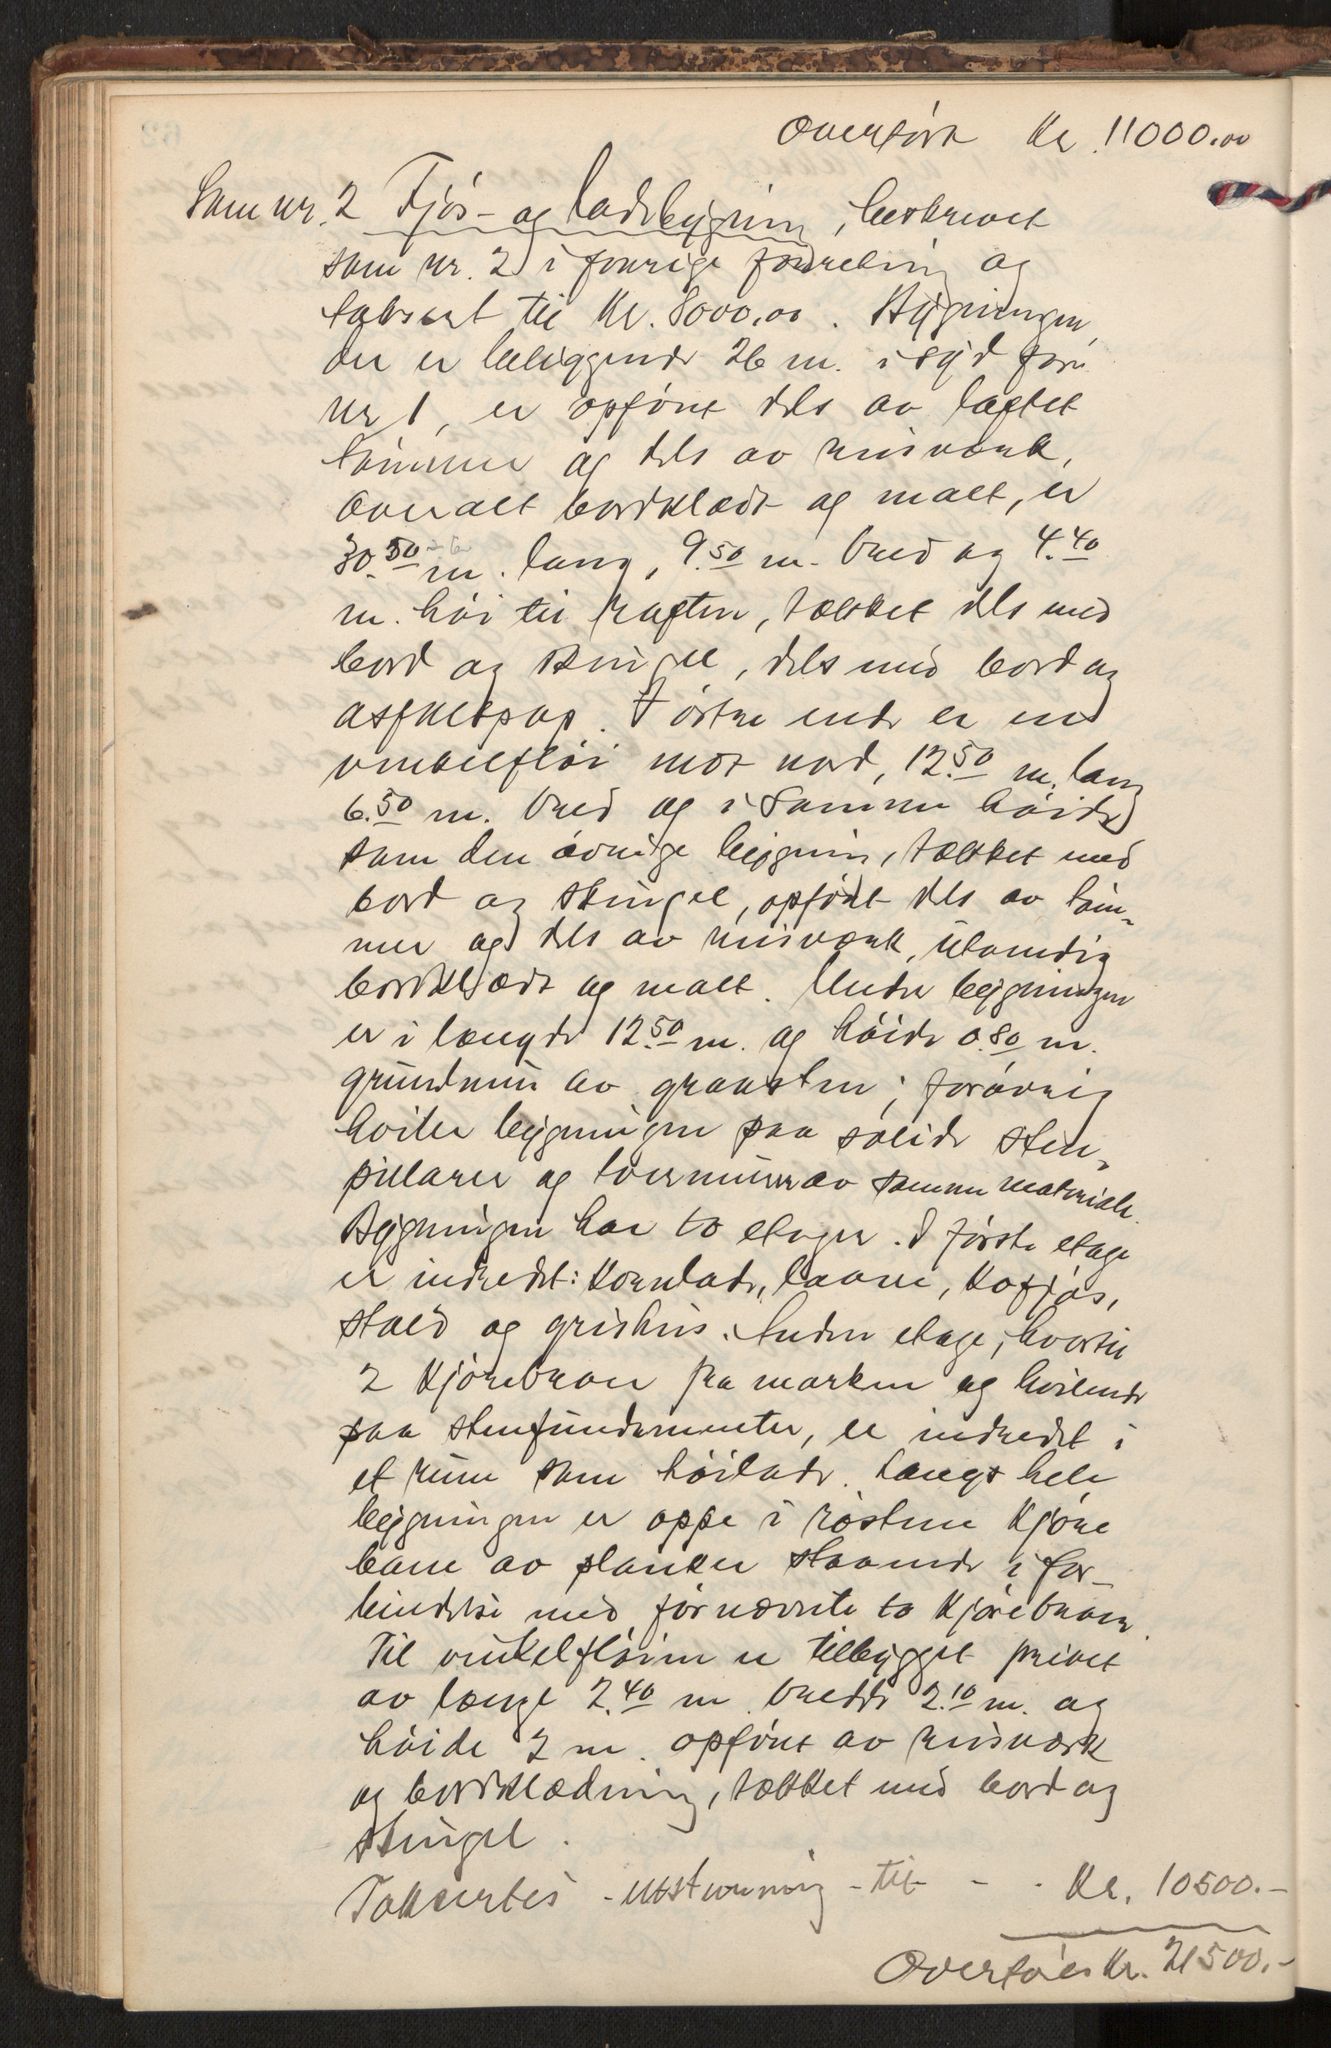 Overført Kr. 11000.00
Som nr. 2 Fjøs- og ladebygning, beskrevet
som nr. 2 i forrige forretning og
taksert til Kr. 8000.00. Bygningen,
der er beliggende 26 m. i syd for
nr 1, er opført dels av laftet
tømmer og dels av reisværk,
overalt bordklædt og malt, er
30.50 m. lang, 9.50 m. bred og 4.40
m. høi til raften, tækket dels med
bord og skingel, dels med bord og
asfaltpap. I østre ende er en
vinkelfløi mot nord, 12.50 m. lang
6.50 m. bred og i samme høide
som den øvrige bygning, tækket med
bord og skingel, opført dels av tøm-
mer og dels av reisværk, utvendig
bordklædt og malt. Under bygningen
er i længde 12.50 m. og høide 0.80 m.
grundmur av graasten; forøvrig
hviler bygningen paa solide sten-
pillarer og tvermurer av samme materiale.
Bygningen har to etager. I første etage
er indredet: Kornlade, laave, Kofjøs,
stald og grishus. Anden etage, hvortil
2 Kjørebroer fra marken og hvilende
paa stenfundamenter, er indredet i
et rum som høilade. Langs hele
bygningen er oppe i røstene Kjøre
bane av planker staaende i for-
bindelse med førnævnte to Kjørebroer.
Til vinkelfløien er tilbygget privet
av længde 2.40 m. bredde 2.10 m. og
høide 2 m. opført av reisværk
og bordklædning, tækket med bord og
skingel.
Taksertes - utstrævning - til - - Kr. 10500.-
Overføres Kr. 21500.-